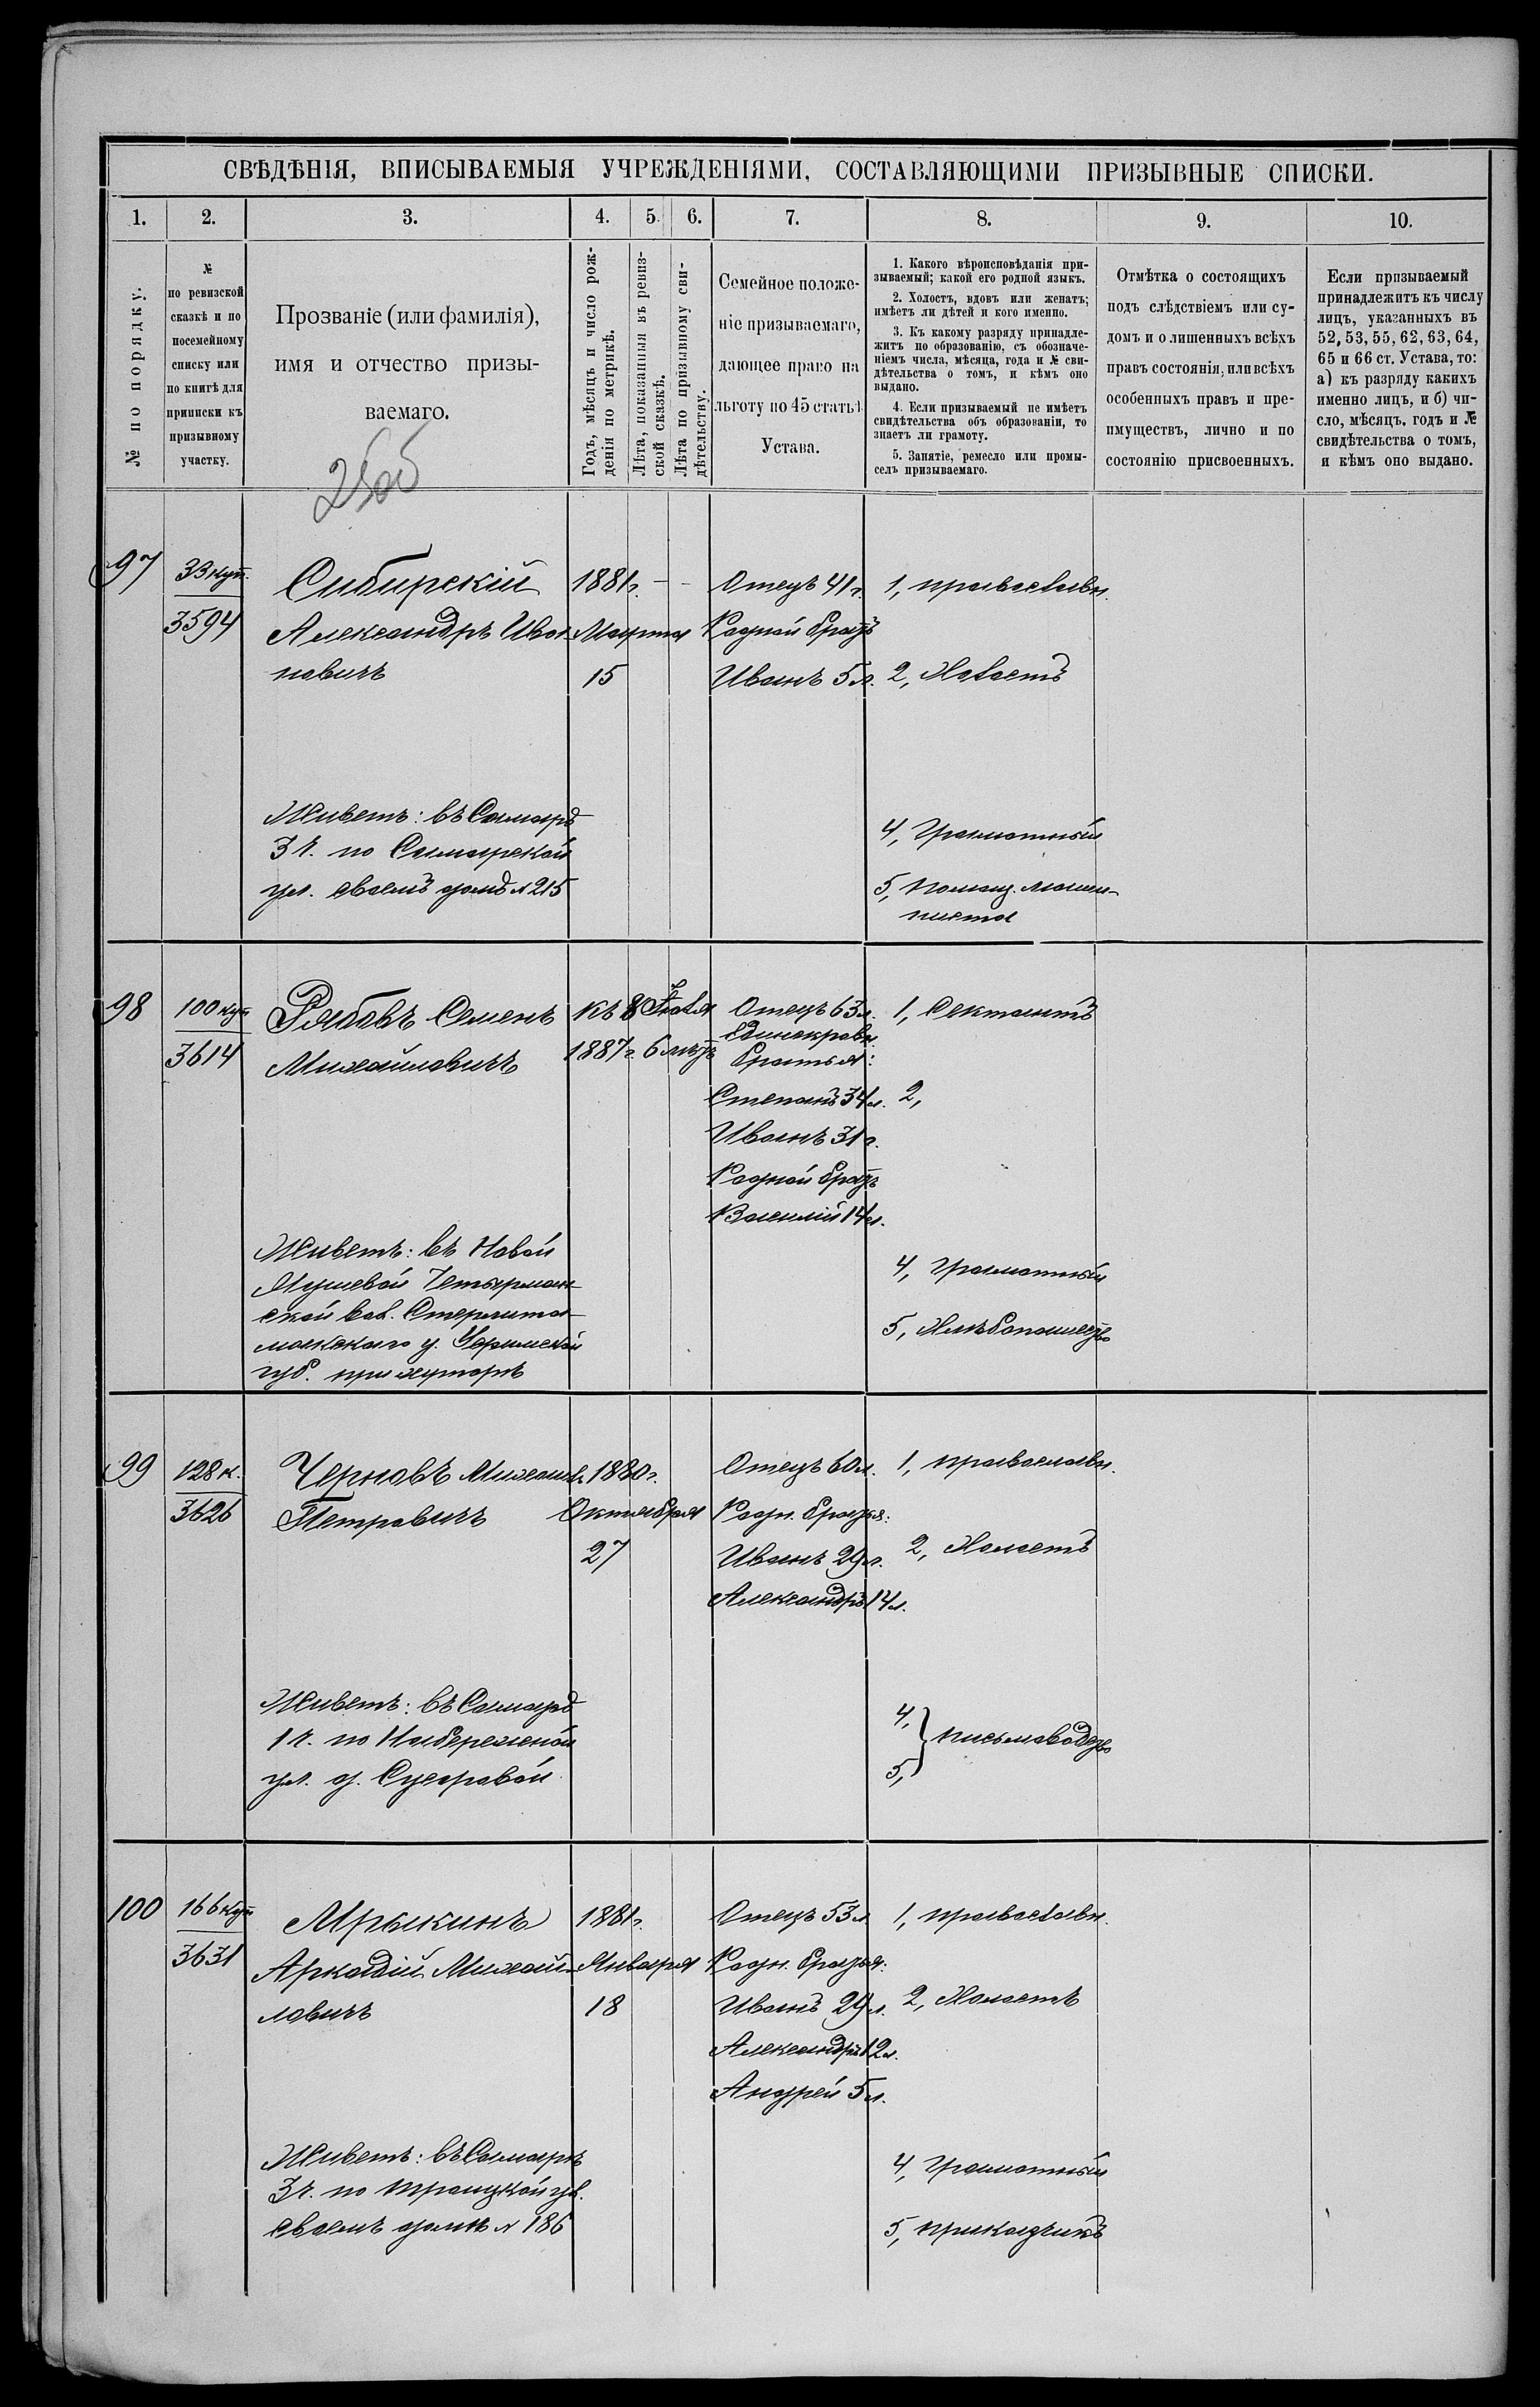 СВѢДѢНІЯ, ВПИСЫВАЕМЫЯ УЧРЕЖДЕНІЯМИ, СОСТАВЛЯЮЩИМИ ПРИЗЫВНЫЕ СПИСКИ.
1.
2.
3.
4.
5.
6.
7.
8.
9.
10.
№ по порядку.
№
по ревизской
сказкѣ и по
посемейному
списку или
по книгѣ для
приписки къ
призывному
участку.
Прозваніе (или фамилія),
имя и отчество призы-
ваемаго.
Годъ, мѣсяцъ и число рож-
денія по метрикѣ.
Лѣта, показанныя въ ревиз-
ской сказкѣ.
Лѣта по призывному сви-
дѣтельству.
Семейное положе-
ніе призываемаго,
дающее право на
льготу по 45 статьѣ
Устава.
1. Какого вѣроисповѣданія при-
зываемый; какой его родной языкъ.
2. Холостъ, вдовъ или женатъ;
имѣетъ ли дѣтей и кого именно.
3. Къ какому разряду принадле-
житъ по образованію, съ обозначе-
ніемъ числа, мѣсяца, года и № сви-
дѣтельства о томъ, и кѣмъ оно
выдано.
4. Если призываемый не имѣетъ
свидѣтельства объ образованіи, то
знаетъ ли грамоту.
5. Занятіе, ремесло или промы-
селъ призываемаго.
Отмѣтка о состоящихъ
подъ слѣдствіемъ или су-
домъ и о лишенныхъ всѣхъ
правъ состоянія, или всѣхъ
особенныхъ правъ и пре-
имуществъ, лично и по
состоянію присвоенныхъ.
Если призываемый
принадлежитъ къ числу
лицъ, указанныхъ въ
52, 53, 55, 62, 63, 64,
65 и 66 ст. Устава, то:
а) къ разряду какихъ
именно лицъ, и б) чи-
сло, мѣсяцъ, годъ и №
свидѣтельства о томъ,
и кѣмъ оно выдано.
97
33 куп.
3594
Сибирскій
Александръ Ива-
новичъ
1881 г. – –
Марта
15
Отецъ 41 г.
Родной братъ
Иванъ 5 л.
1, православн.
2, Холостъ
Живетъ: въ Самарѣ
3 ч. по Самарской
ул. своемъ домѣ № 215
4, Грамотный
5, помощ. маши-
ниста
98
100 куп
3614
Рябовъ Семенъ
Михайловичъ
Къ 8 Іюля
1887 г. 6 лѣтъ
Отецъ 63 л.
Единокровн.
братья:
Степанъ 34 л.
Иванъ 31 г.
Родной братъ
Василій 14 л.
1, Сектантъ
2,
Живетъ: въ Новой
ской вол. Стерлита-
макскаго у. Уфимской
губ. при хуторѣ
4, Грамотный
5, Хлѣбопашецъ
99
128 к.
3626
Черновъ Михаилъ
Петровичъ
1880 г.
Октября
27
Отецъ 60 л.
Родн. братья:
Иванъ 29 л.
Александръ 14 л.
1, православн.
2, Холостъ
Живетъ: въ Самарѣ
1 ч. по Набережной
ул. д.
4,
5,
письмоводецъ
100
166 куп
3631
Мрыкинъ
Аркадій Михай-
ловичъ
1881 г.
Января
18
Отецъ 53 л
Родн. братья:
Иванъ 29 л.
Александръ 12 л.
Андрей 5 л.
1, православн.
2, Холостъ
Живетъ: въ Самарѣ
3 ч. по Троицкой ул.
своемъ домѣ № 186
4, Грамотный
5, приказчикъ